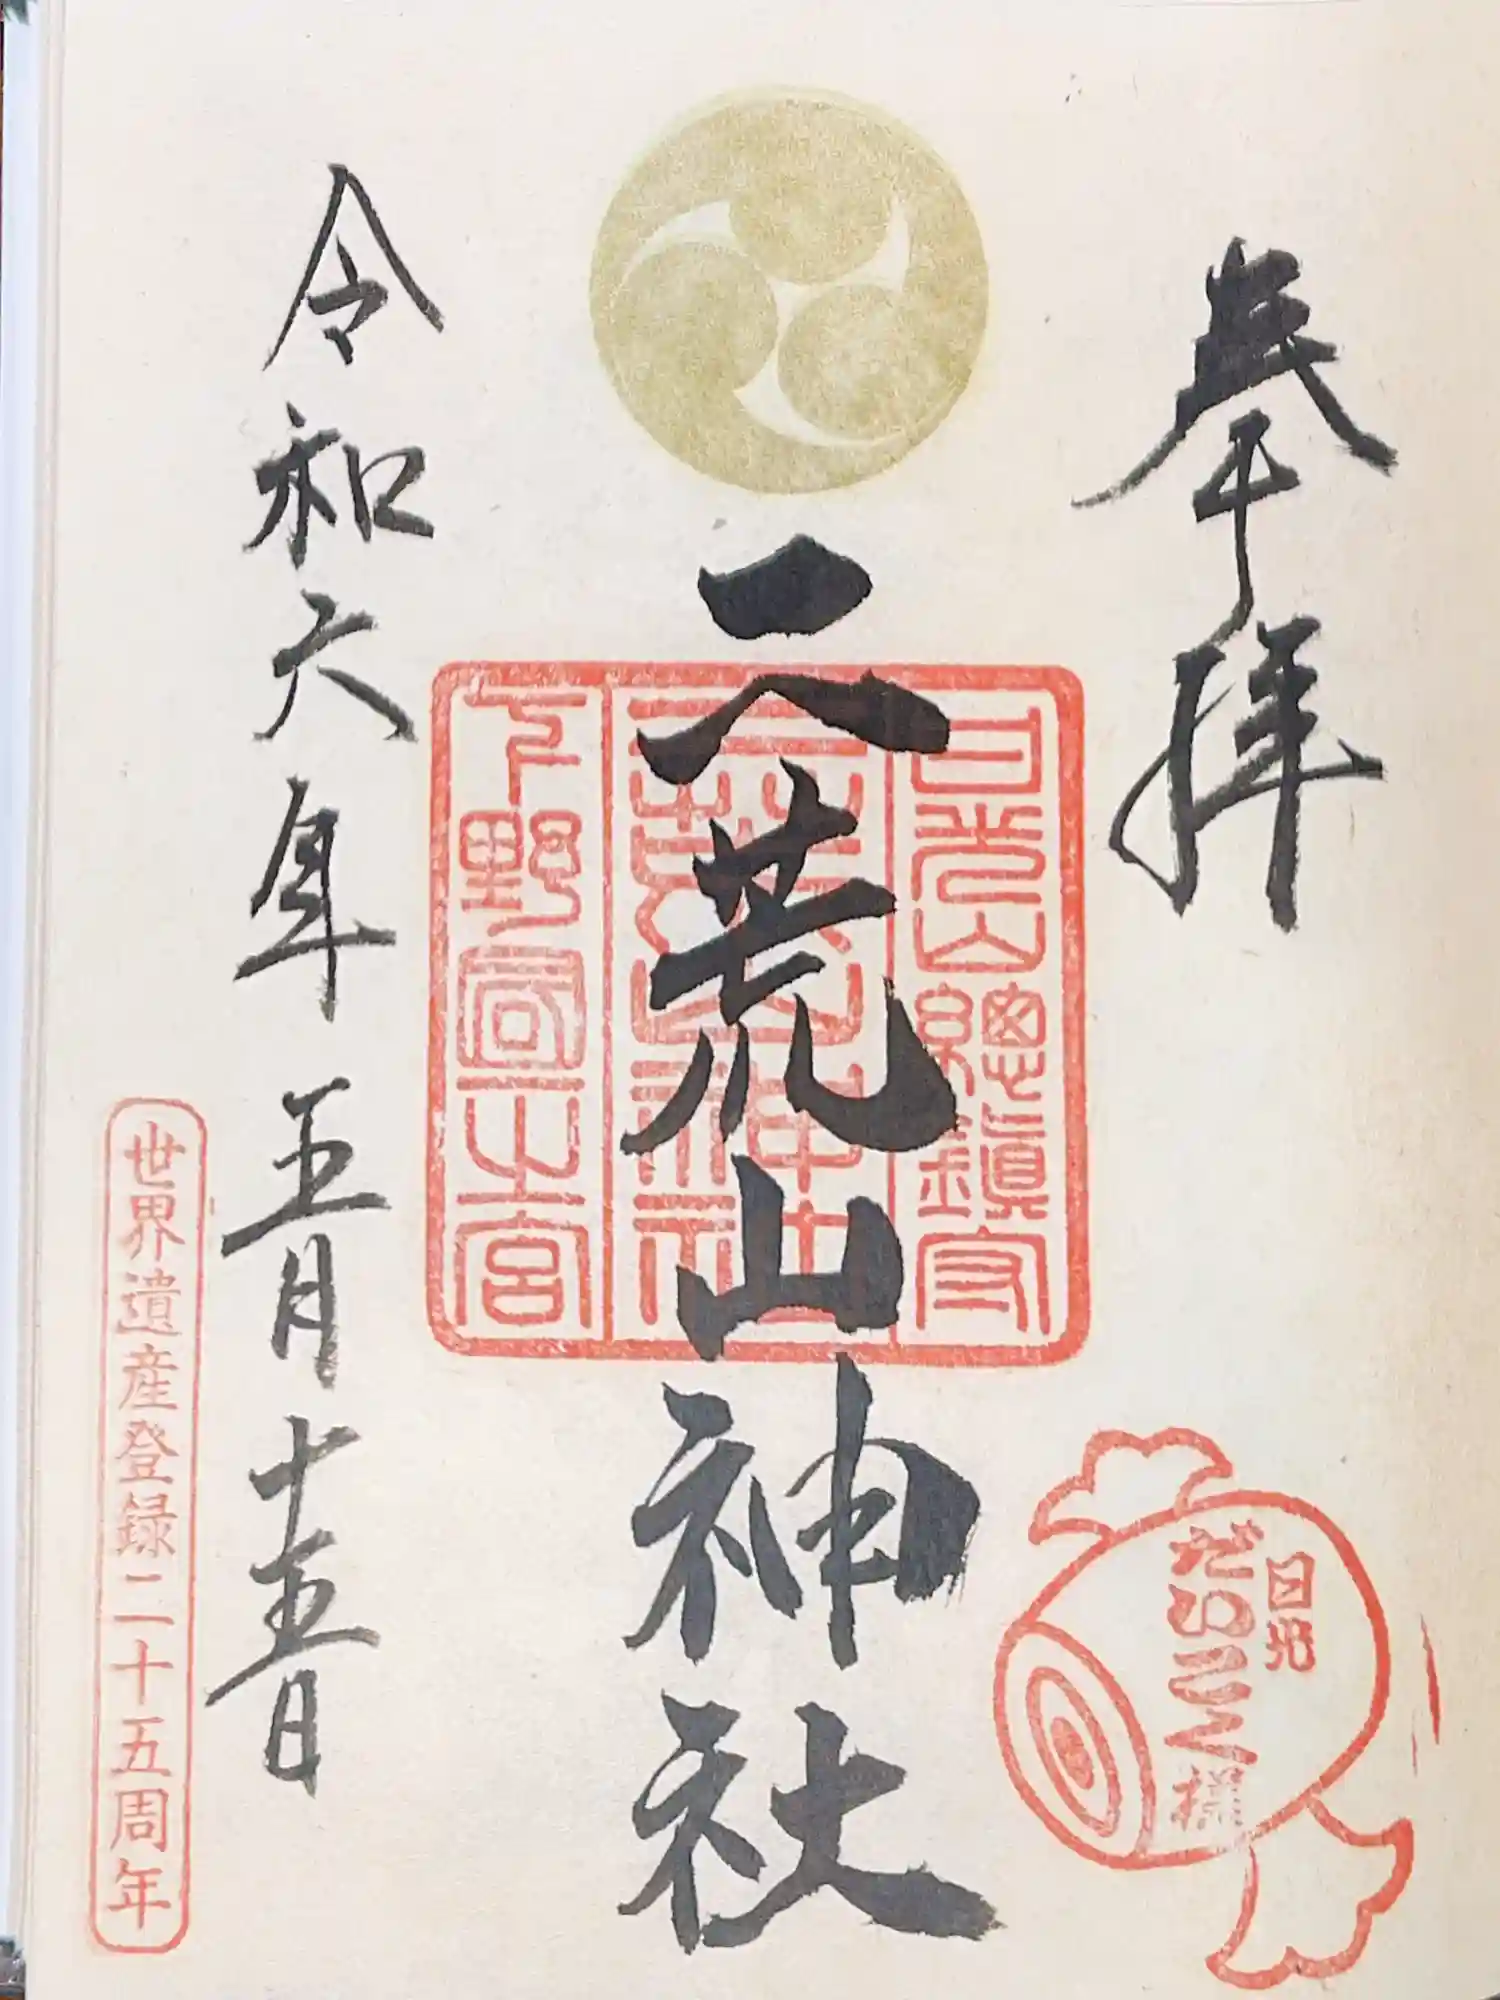 奉拝
日光
だいこく様
日光山總鎮守
二荒山神社
下野國一之宮
二荒山神社
令和六年五月十五日
世界遺産登録二十五周年